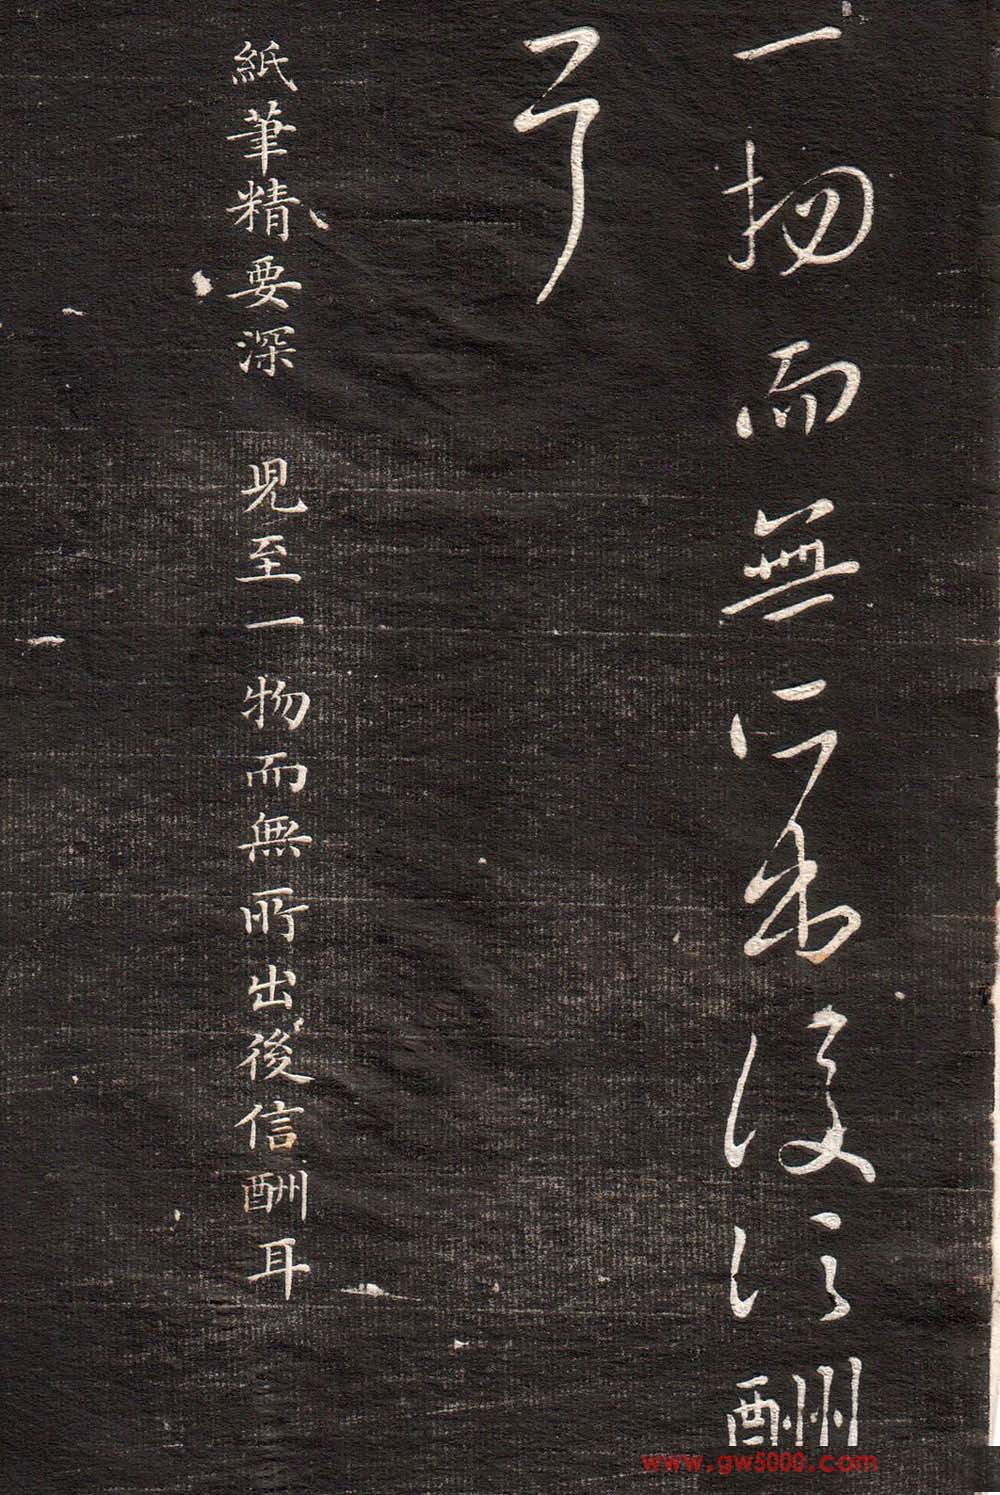 一物而無所出後信酬
耳
紙筆精要深 皃至一物而無所出後信酬耳
www.gw5000.com